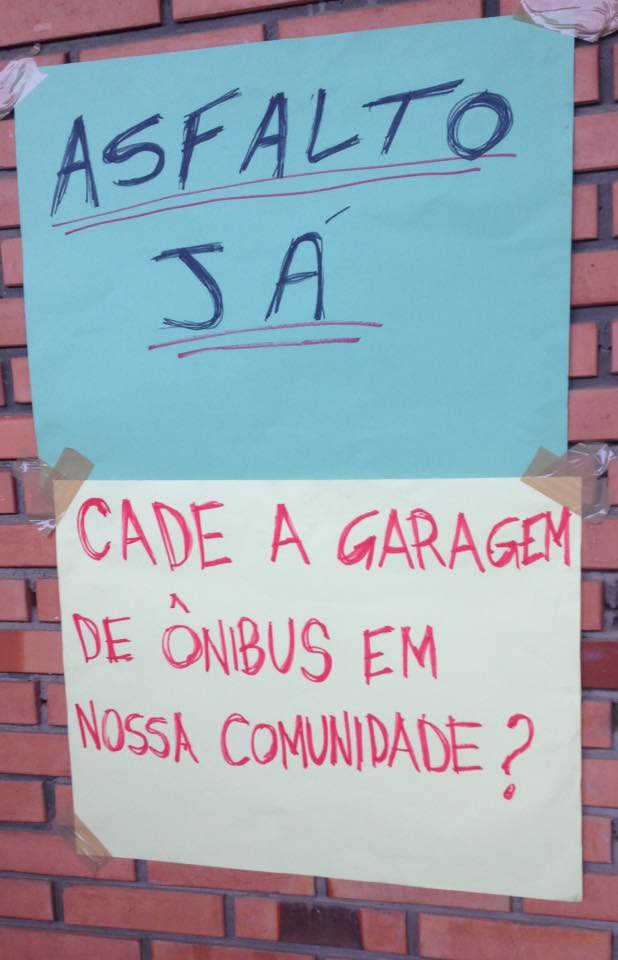 ASFALTO
JÁ
CADE A GARAGEM
DE ÔNIBUS EM
NOSSA COMUNIDADE?